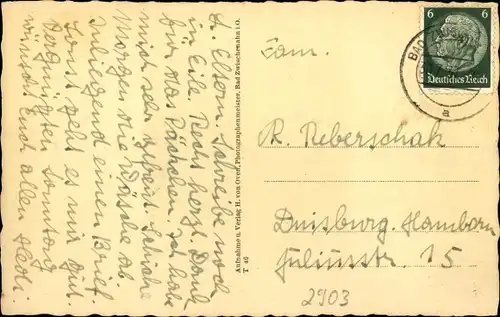 L. Eltern. Schreibe noch
in Eile. Recht herzl. Dank
für das Päckchen. Ich habe
mich sehr gefreut. Schicke
Morgen die Wäsche ab.
Inliegend einen Brief.
Sonst geht es mir gut.
Vergnügten Sonntag
wünscht Euch allen
Aufnahme u. Verlag H. von Oven, Photographenmeister, Bad Zwischenahn i.O.
T 46
6 6
Deutsches Reich
BAD
a
Fam.
R. Reberschak
Duisburg. Hamborn
Juliusstr. 15
2903